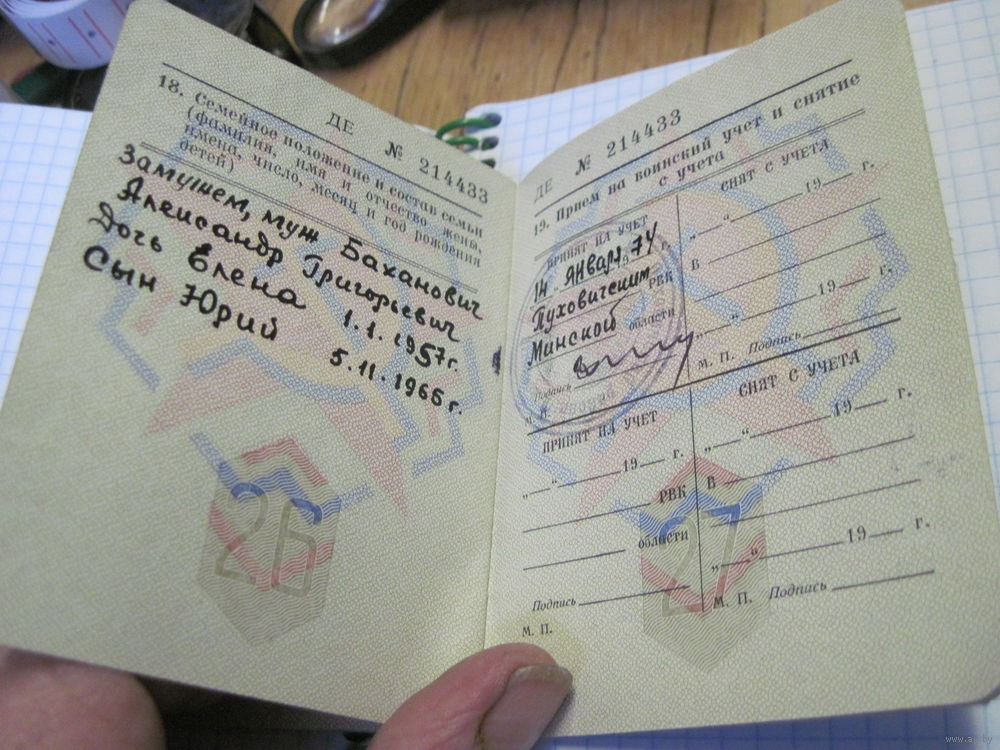 ДЕ № 214433
18. Семейное положение и состав семьи
(фамилия, имя и отчество жены,
имена, число, месяц и год рождения
детей)
Замужем, муж Баханович
Александр Григорьевич
Дочь Елена 1.1.1957г.
Сын Юрий 5.11.1966г.
26
ДЕ № 214433
19. Прием на воинский учет и снятие
с учета
ПРИНЯТ НА УЧЕТ
14 января 1974 г.
Пуховичским РВК
Минской области
Подпись
СНЯТ С УЧЕТА
„ “ 19 г.
В
„ “ 19 г.
М. П. Подпись
ПРИНЯТ НА УЧЕТ
„ “ 19 г.
РВК
области
Подпись
М. П.
СНЯТ С УЧЕТА
„ “ 19 г.
В
„ “ 19 г.
М. П. Подпись
27